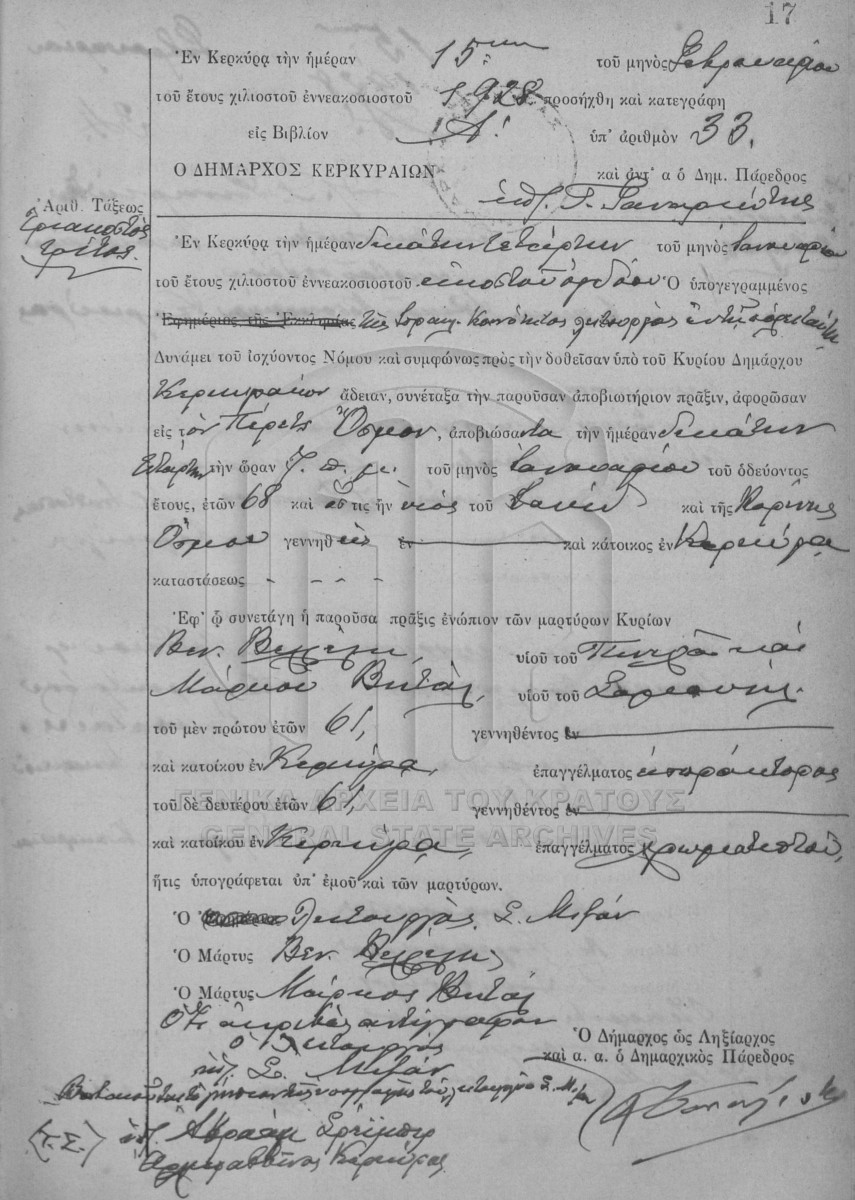 17
Ἐν Κερκύρᾳ τὴν ἡμέραν 15ην τοῦ μηνὸς Φεβρουαρίου
τοῦ ἔτους χιλιοστοῦ ἐννεακοσιοστοῦ 1928 προσήχθη καὶ κατεγράφη
εἰς Βιβλίον Α! ὑπ' ἀριθμὸν 33.
Ο ΔΗΜΑΡΧΟΣ ΚΕΡΚΥΡΑΙΩΝ καὶ ἀντ' α ὁ Δημ. Πάρεδρος
Ἀριθ. Τάξεως
τριακοστὸς
τρίτος.
Ἐν Κερκύρᾳ τὴν ἡμέραν δεκάτην τετάρτην τοῦ μηνὸς Ἰανουαρίου
τοῦ ἔτους χιλιοστοῦ ἐννεακοσιοστοῦ εἰκοστοῦ ὀγδόου Ὁ ὑπογεγραμμένος
Ἐφημέριος τῆς Ἐκκλησίας τῆς Ἰσραηλ. Κοινότητος λειτουργὸς
Δυνάμει τοῦ ἰσχύοντος Νόμου καὶ συμφώνως πρὸς τὴν δοθεῖσαν ὑπὸ τοῦ Κυρίου Δημάρχου
Κερκυραίων ἄδειαν, συνέταξα τὴν παροῦσαν ἀποβιωτήριον πρᾶξιν, ἀφορῶσαν
εἰς τὸν Πέρετς Ὄσμον, ἀποβιώσαντα τὴν ἡμέραν δεκάτην
τετάρτην τὴν ὥραν 7. π. μ. τοῦ μηνὸς Ἰανουαρίου τοῦ ὁδεύοντος
ἔτους, ἐτῶν 68 καὶ ὅστις ἦν υἱὸς τοῦ καὶ τῆς
Ὄσμου γεννηθεὶς ἐν καὶ κάτοικος ἐν Κερκύρᾳ
καταστάσεως - - - -
Ἐφ' ᾧ συνετάγη ἡ παροῦσα πρᾶξις ἐνώπιον τῶν μαρτύρων Κυρίων
Βεν. Βελέλη, υἱοῦ τοῦ καὶ
Μάρκου Βιτάλ, υἱοῦ τοῦ Σαμουήλ.
τοῦ μὲν πρώτου ἐτῶν 61, γεννηθέντος ἐν
καὶ κατοίκου ἐν Κερκύρᾳ, ἐπαγγέλματος
τοῦ δὲ δευτέρου ἐτῶν 61, γεννηθέντος ἐν
καὶ κατοίκου ἐν Κερκύρᾳ, ἐπαγγέλματος χρωματιστοῦ,
ἥτις ὑπογράφεται ὑπ' ἐμοῦ καὶ τῶν μαρτύρων.
Ὁ Λειτουργὸς Σ. Μιζάν
Ὁ Μάρτυς Βεν. Βελέλης
Ὁ Μάρτυς Μάρκος Βιτάλ
Ὅτι ἀκριβὲς ἀντίγραφον
ὁ Λειτουργὸς
Σ. Μιζάν
Ὁ Δήμαρχος ὡς Ληξίαρχος
καὶ α. α. ὁ Δημαρχικὸς Πάρεδρος
(Τ.Σ.) Ἀβραὰμ
Ἀρχιραββῖνος Κερκύρας
ΓΕΝΙΚΑ ΑΡΧΕΙΑ ΤΟΥ ΚΡΑΤΟΥΣ
GENERAL STATE ARCHIVES